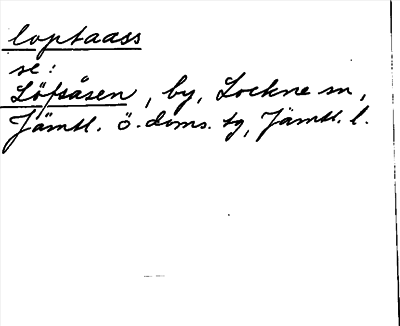 loptaass
se:
Löfsåsen, by, Lockne sn,
Jämtl. ö. doms. tg, Jämtl. l.